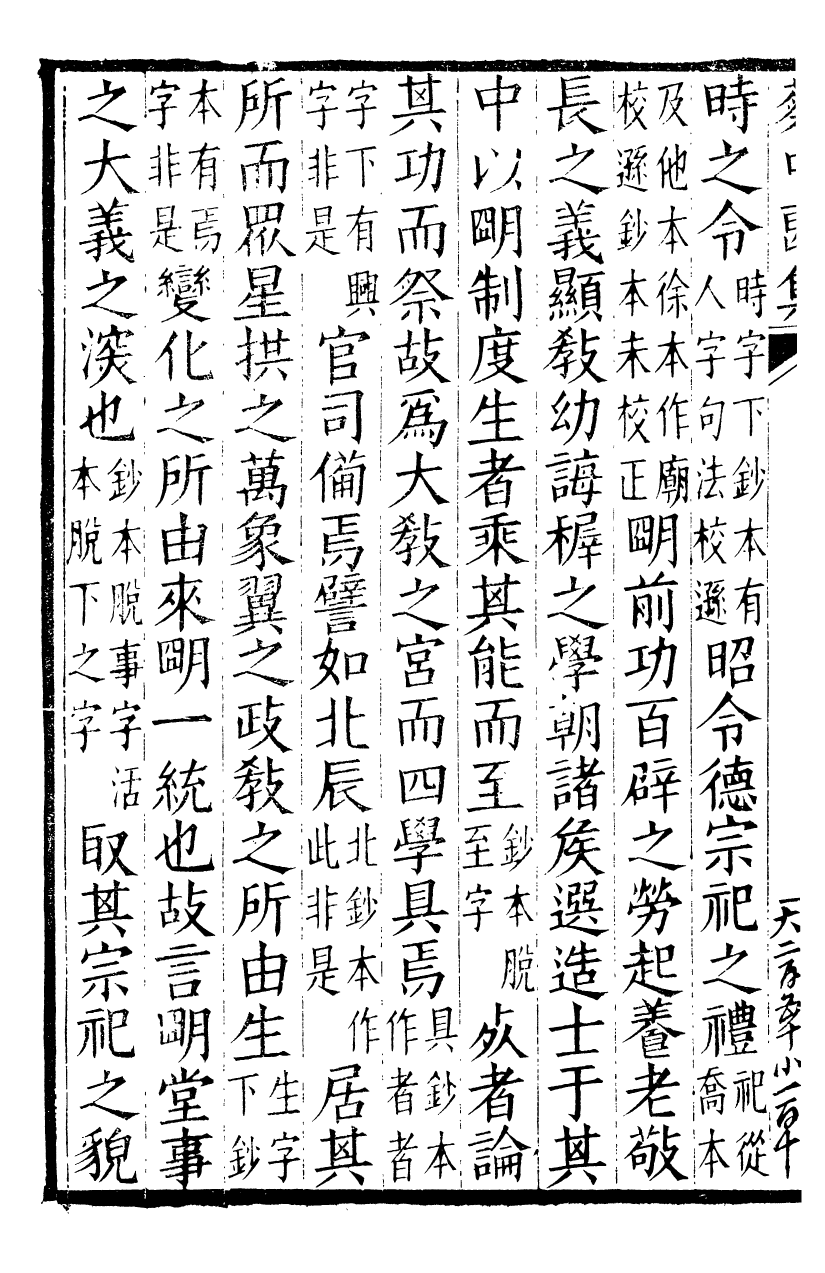 時之令時字下鈔本有人字句法校遜昭令德宗祀之禮祀從喬本
及他本徐本作廟校遜鈔本未校正朙前功百辟之勞起養老敬
長之義顯教幼誨稺之學朝諸矦選造士于其
中以朙制度生者乘其能而至鈔本脫至字𣦸者論
其功而祭故爲大教之宮而四學具焉具鈔本作者者
字下有興字非是官司備焉譬如北辰北鈔本作此非是居其
所而眾星拱之萬象翼之政教之所由生生字下鈔
本有焉字非是變化之所由來朙一統也故言朙堂事
之大義之深也鈔本脫事字活本脫下之字取其宗祀之貌